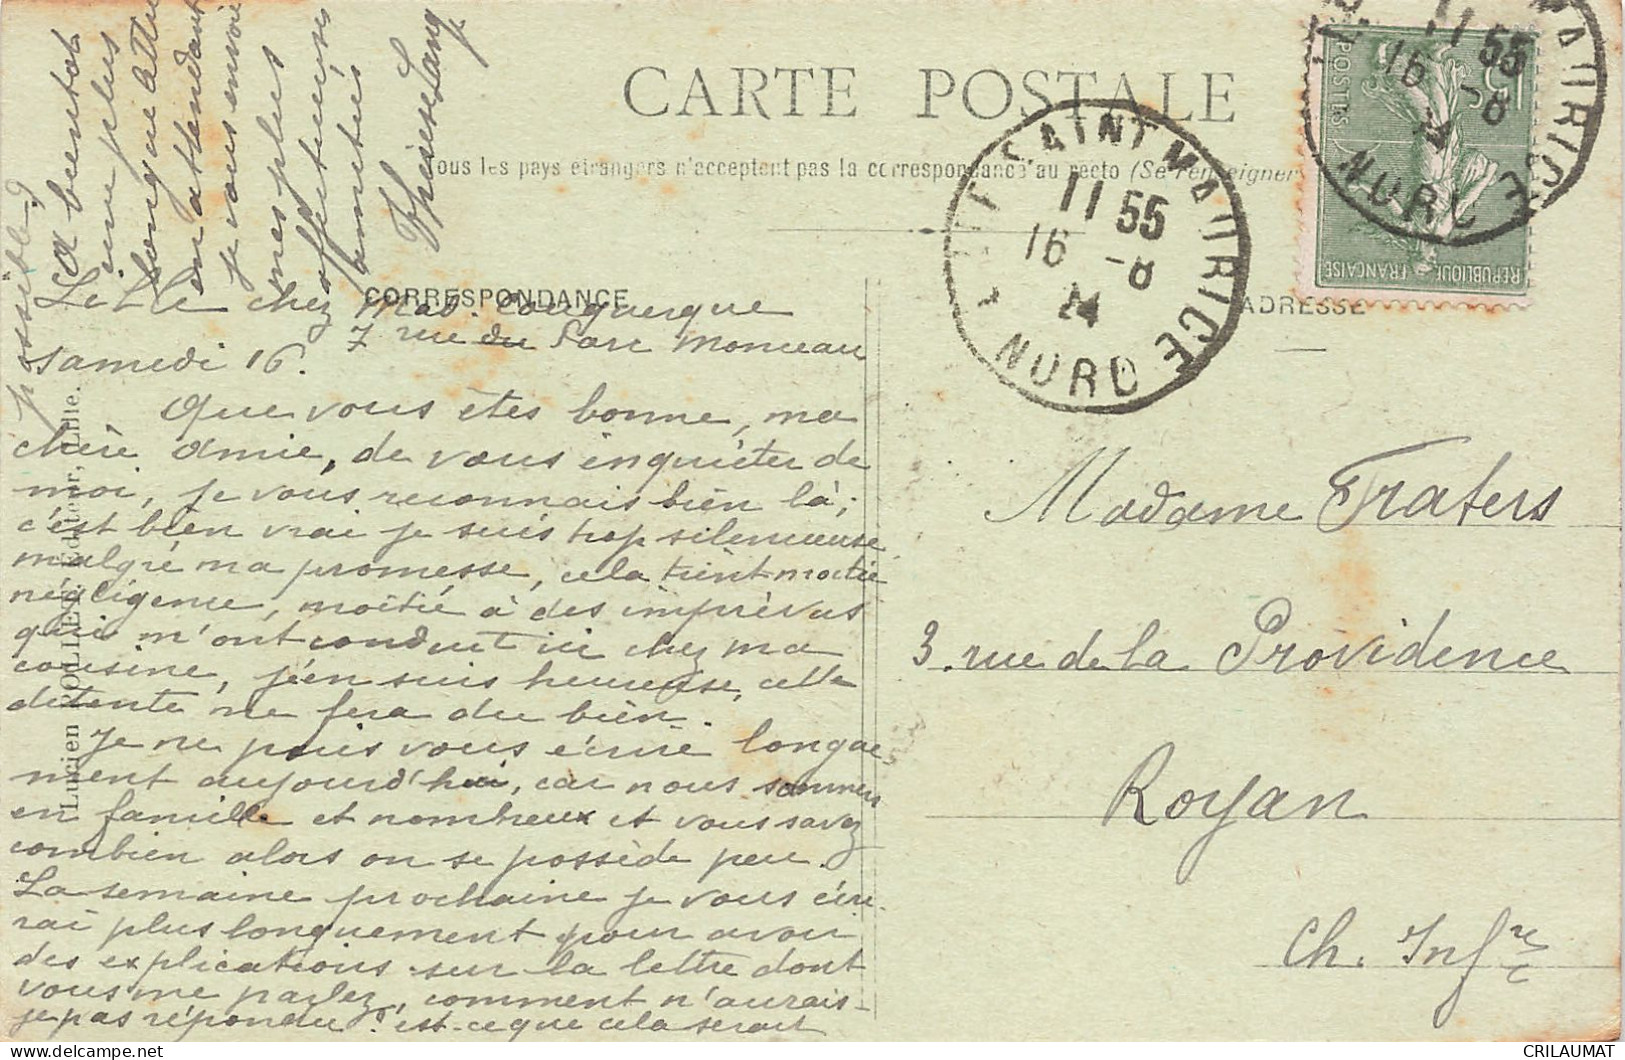 CARTE POSTALE
Tous les pays étrangers n'acceptent pas la correspondance au recto (Se renseigner
CORRESPONDANCE
ADRESSE
Lucien POLLET, Editeur, Lille.
SAINT MAURICE
11 55
16 -8
24
NORD
11 55
16 -8
24
MAURICE
NORD
POSTES
15c
REPUBLIQUE FRANÇAISE
Lille chez Mad. Couquerque
7 rue du Parc Monceau
Samedi 16.
Que vous êtes bonne, ma
chère amie, de vous inquiéter de
moi, je vous reconnais bien là;
c'est bien vrai je suis trop silencieuse
malgré ma promesse, cela tient moitié
négligence, moitié à des imprévus
qui m'ont conduit ici chez ma
cousine, j'en suis heureuse, cette
détente me fera du bien.
Je ne puis vous écrire longue
ment aujourd'hui, car nous sommes
en famille et nombreux et vous savez
combien alors on se possède peu.
La semaine prochaine je vous écri
rai plus longuement pour avoir
des explications sur la lettre dont
vous me parlez, comment n'aurais-
je pas répondu? est-ce que cela serait
possible?
A bientôt
une plus
longue lettre
en attendant
je vous envoie
mes plus
affectueuses
amitiés
Madame Fraters
3. rue de la Providence
Royan
Ch. Infre
CRILAUMAT